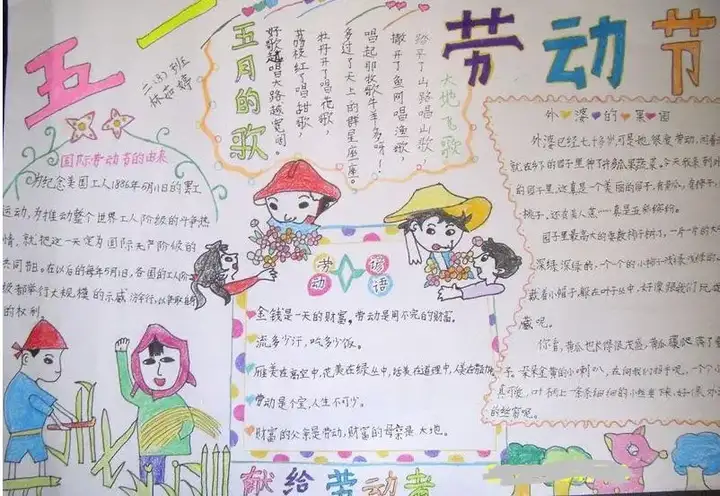 五一
劳动节
二(3)班
林茹婷
国际劳动节的由来
为纪念美国工人1886年5月1日的罢工
运动,为推动整个世界工人阶级的斗争热
情,就把这一天定为国际无产阶级的
共同节日。在以后的每年5月1日,各国的工人阶
级都举行大规模的示威游行,以争取
的权利
五月的歌
好歌越唱大路越宽阔。
荔枝红了唱甜歌,
牡丹开了唱花歌,
多过了天上的群星座座。
唱起那牧歌牛羊多呀!
撒开了鱼网唱渔歌,
踏平了山路唱山歌,
大地飞歌
劳动
谚语
金钱是一天的财富,劳动是用不完的财富。
流多少汗,吃多少饭。
雁美在高空中,花美在绿丛中,话美在道理中,人美在
劳动是个宝,人生不可少。
财富的父亲是劳动,财富的母亲是大地。
献给劳动者
外婆的果园
外婆已经七十多岁,可是她很爱劳动,
就在乡下的园子里种下许多瓜果蔬菜。今天我来到
的园子里,这真是一个美丽的园子,有黄瓜,
桃子,还有美人蕉……真是五彩缤纷。
园子里最高大的要数桃子树了,一片一片的
深绿深绿的,一个个的小桃子
戴着小帽子,躲在叶子丛中,好像跟我们玩
藏呢。
你看,黄瓜也长得很茂盛,黄瓜藤爬满了
朵朵金黄的小喇叭,在向我们招手呢。一个个
真可爱,叶子上一条条细细的小丝垂下来,好似
的丝窗呢。